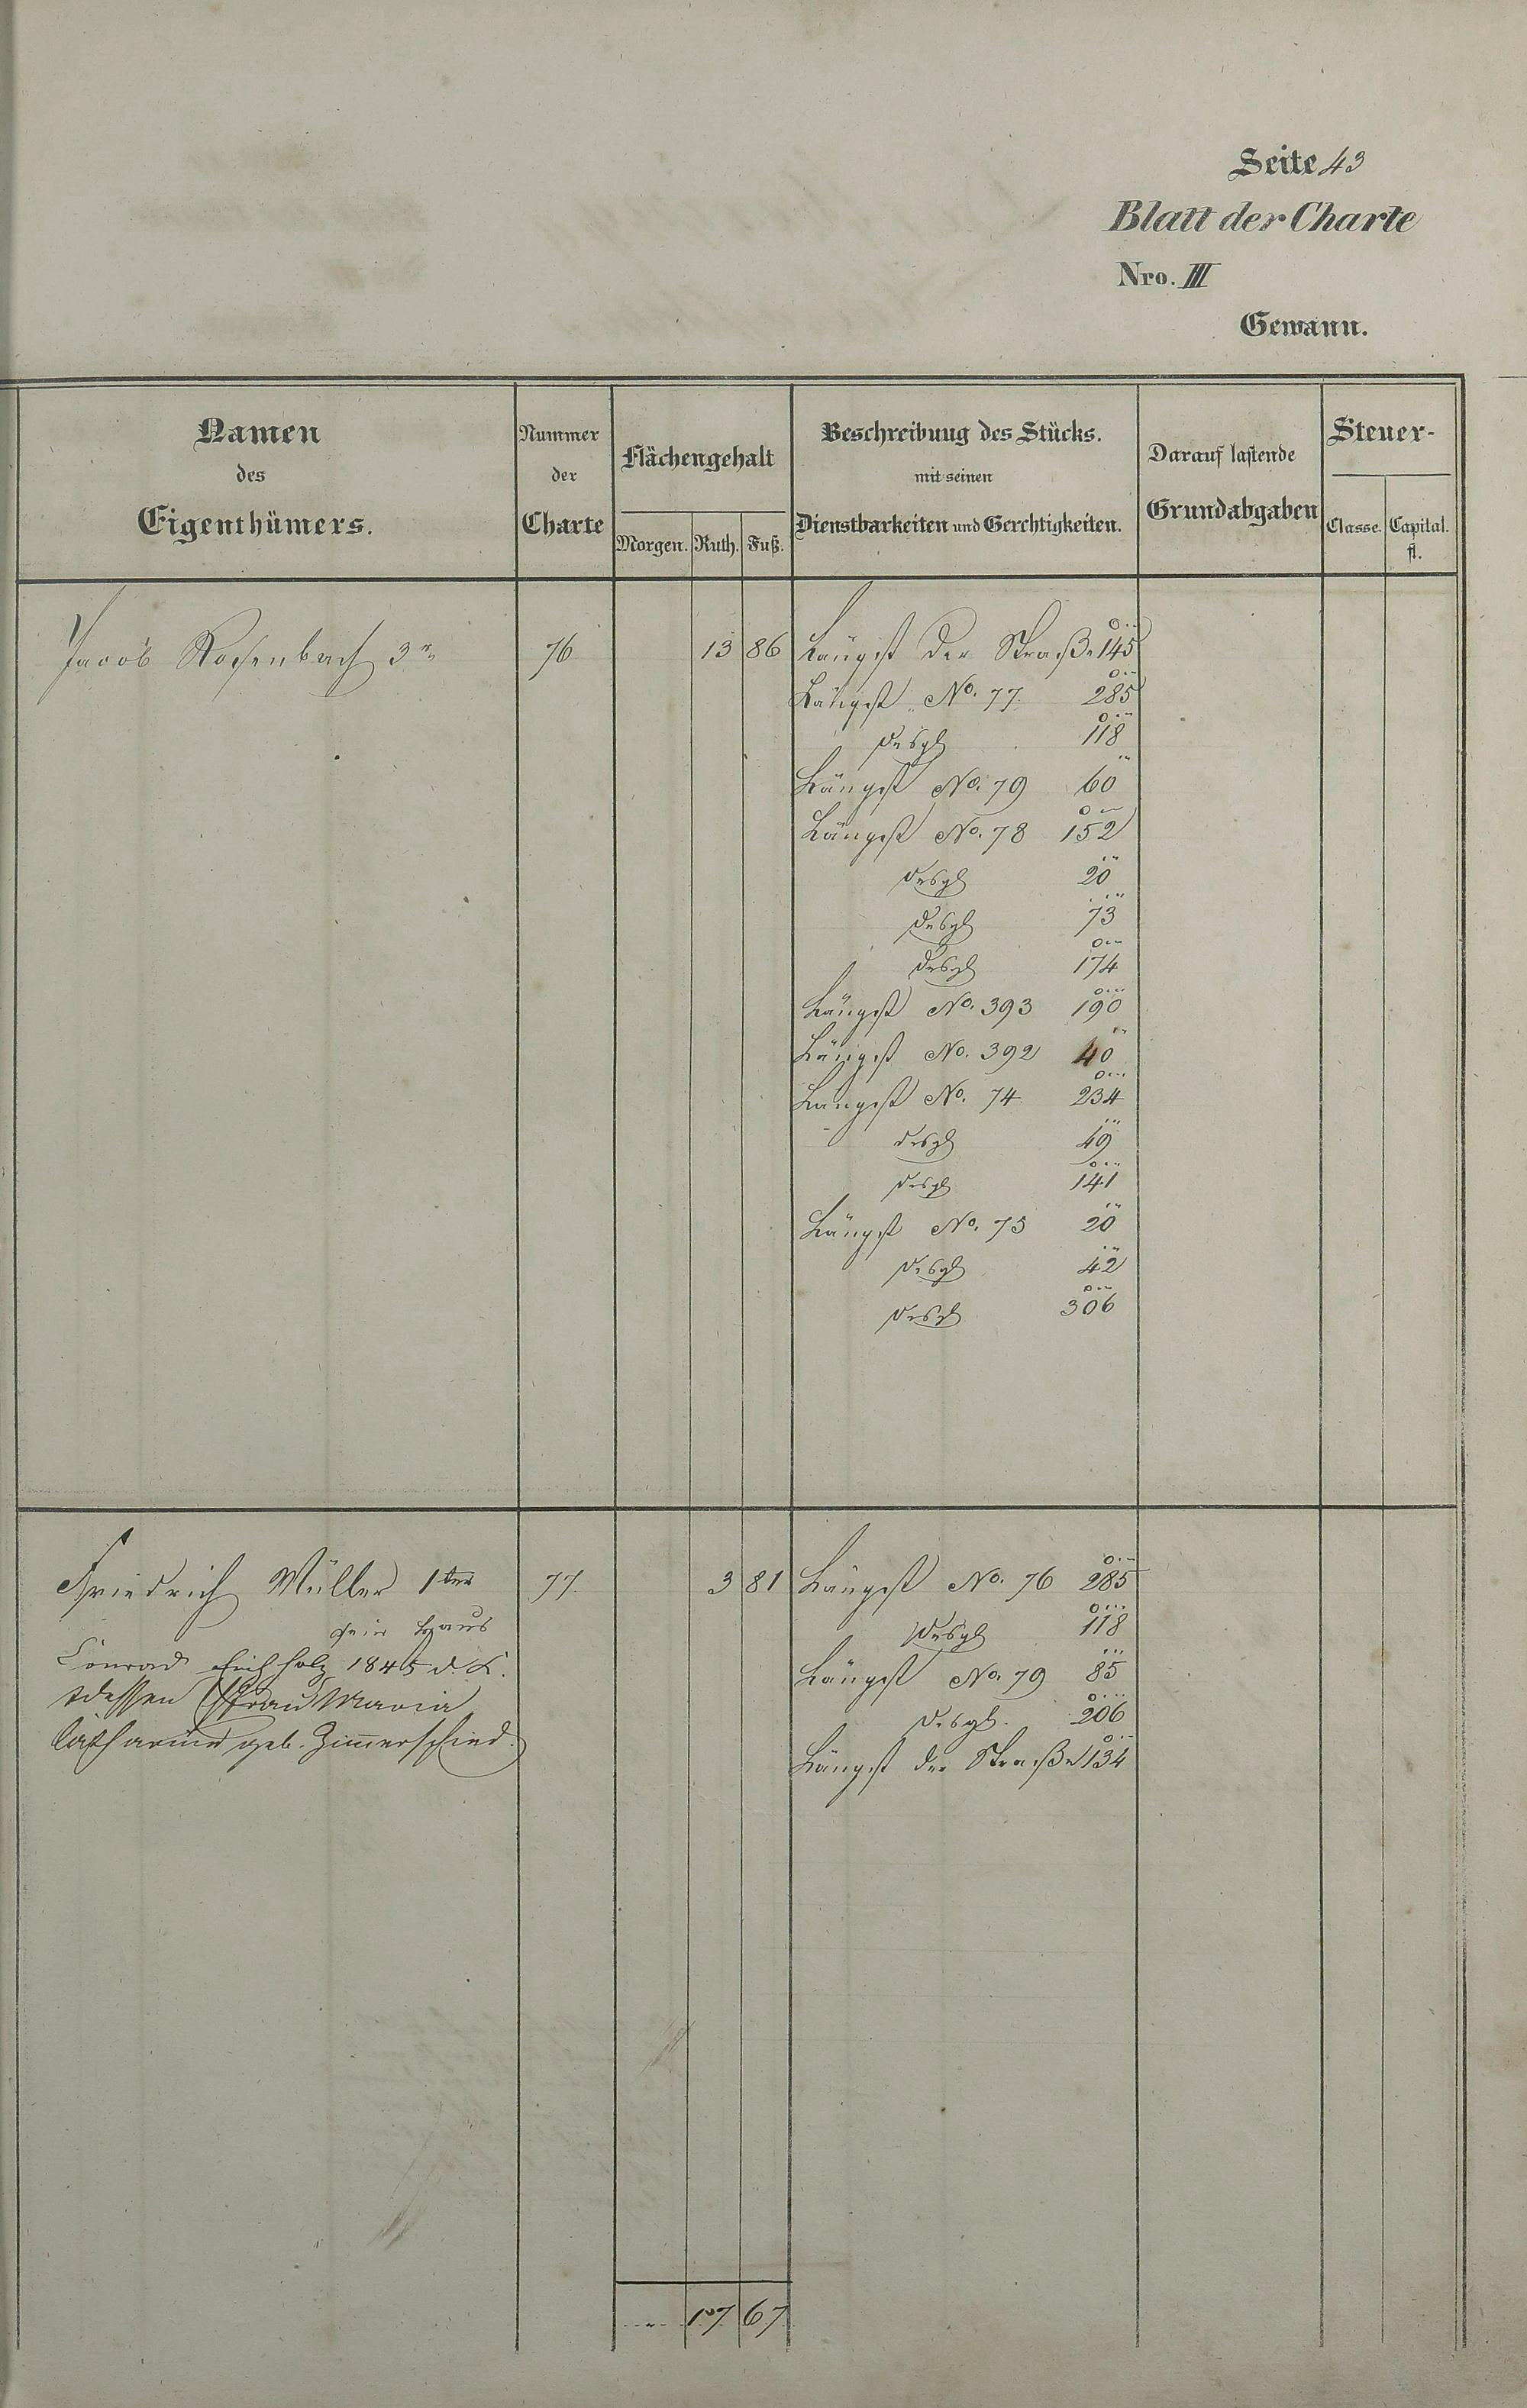 Seite 43
Blatt der Charte
Nro. III
Gewann.
Namen
des
Eigenthümers.
Nummer
der
Charte
Flächengehalt
Morgen. Ruth. Fuß.
Beschreibung des Stücks.
mit seinen
Dienstbarkeiten und Gerchtigkeiten.
Darauf lastende
Grundabgaben
Steuer-
Classe. Capital.
fl.
Jacob Rosenbach 3r 76 13 86 Längst der Straße 145
Längst No. 77 285
desgl 118
Längst No. 79 60
Längst No. 78 152
desgl 20
desgl 73
desgl 174
Längst No. 393 190
Längst No. 392 40
Längst No. 74 234
desgl 49
desgl 141
Längst No. 75 20
desgl 42
desgl 306
Friedrich Müller 1ter 77. 3 81 Längst No. 76 285
sein Haus
desgl 118
Conrad Eichholz 1845 d. K.
Längst No. 79 85
dessen Frau Maria
desgl. 206
Catharina geb. Zimerschied.
Längst der Straße 134
17 67